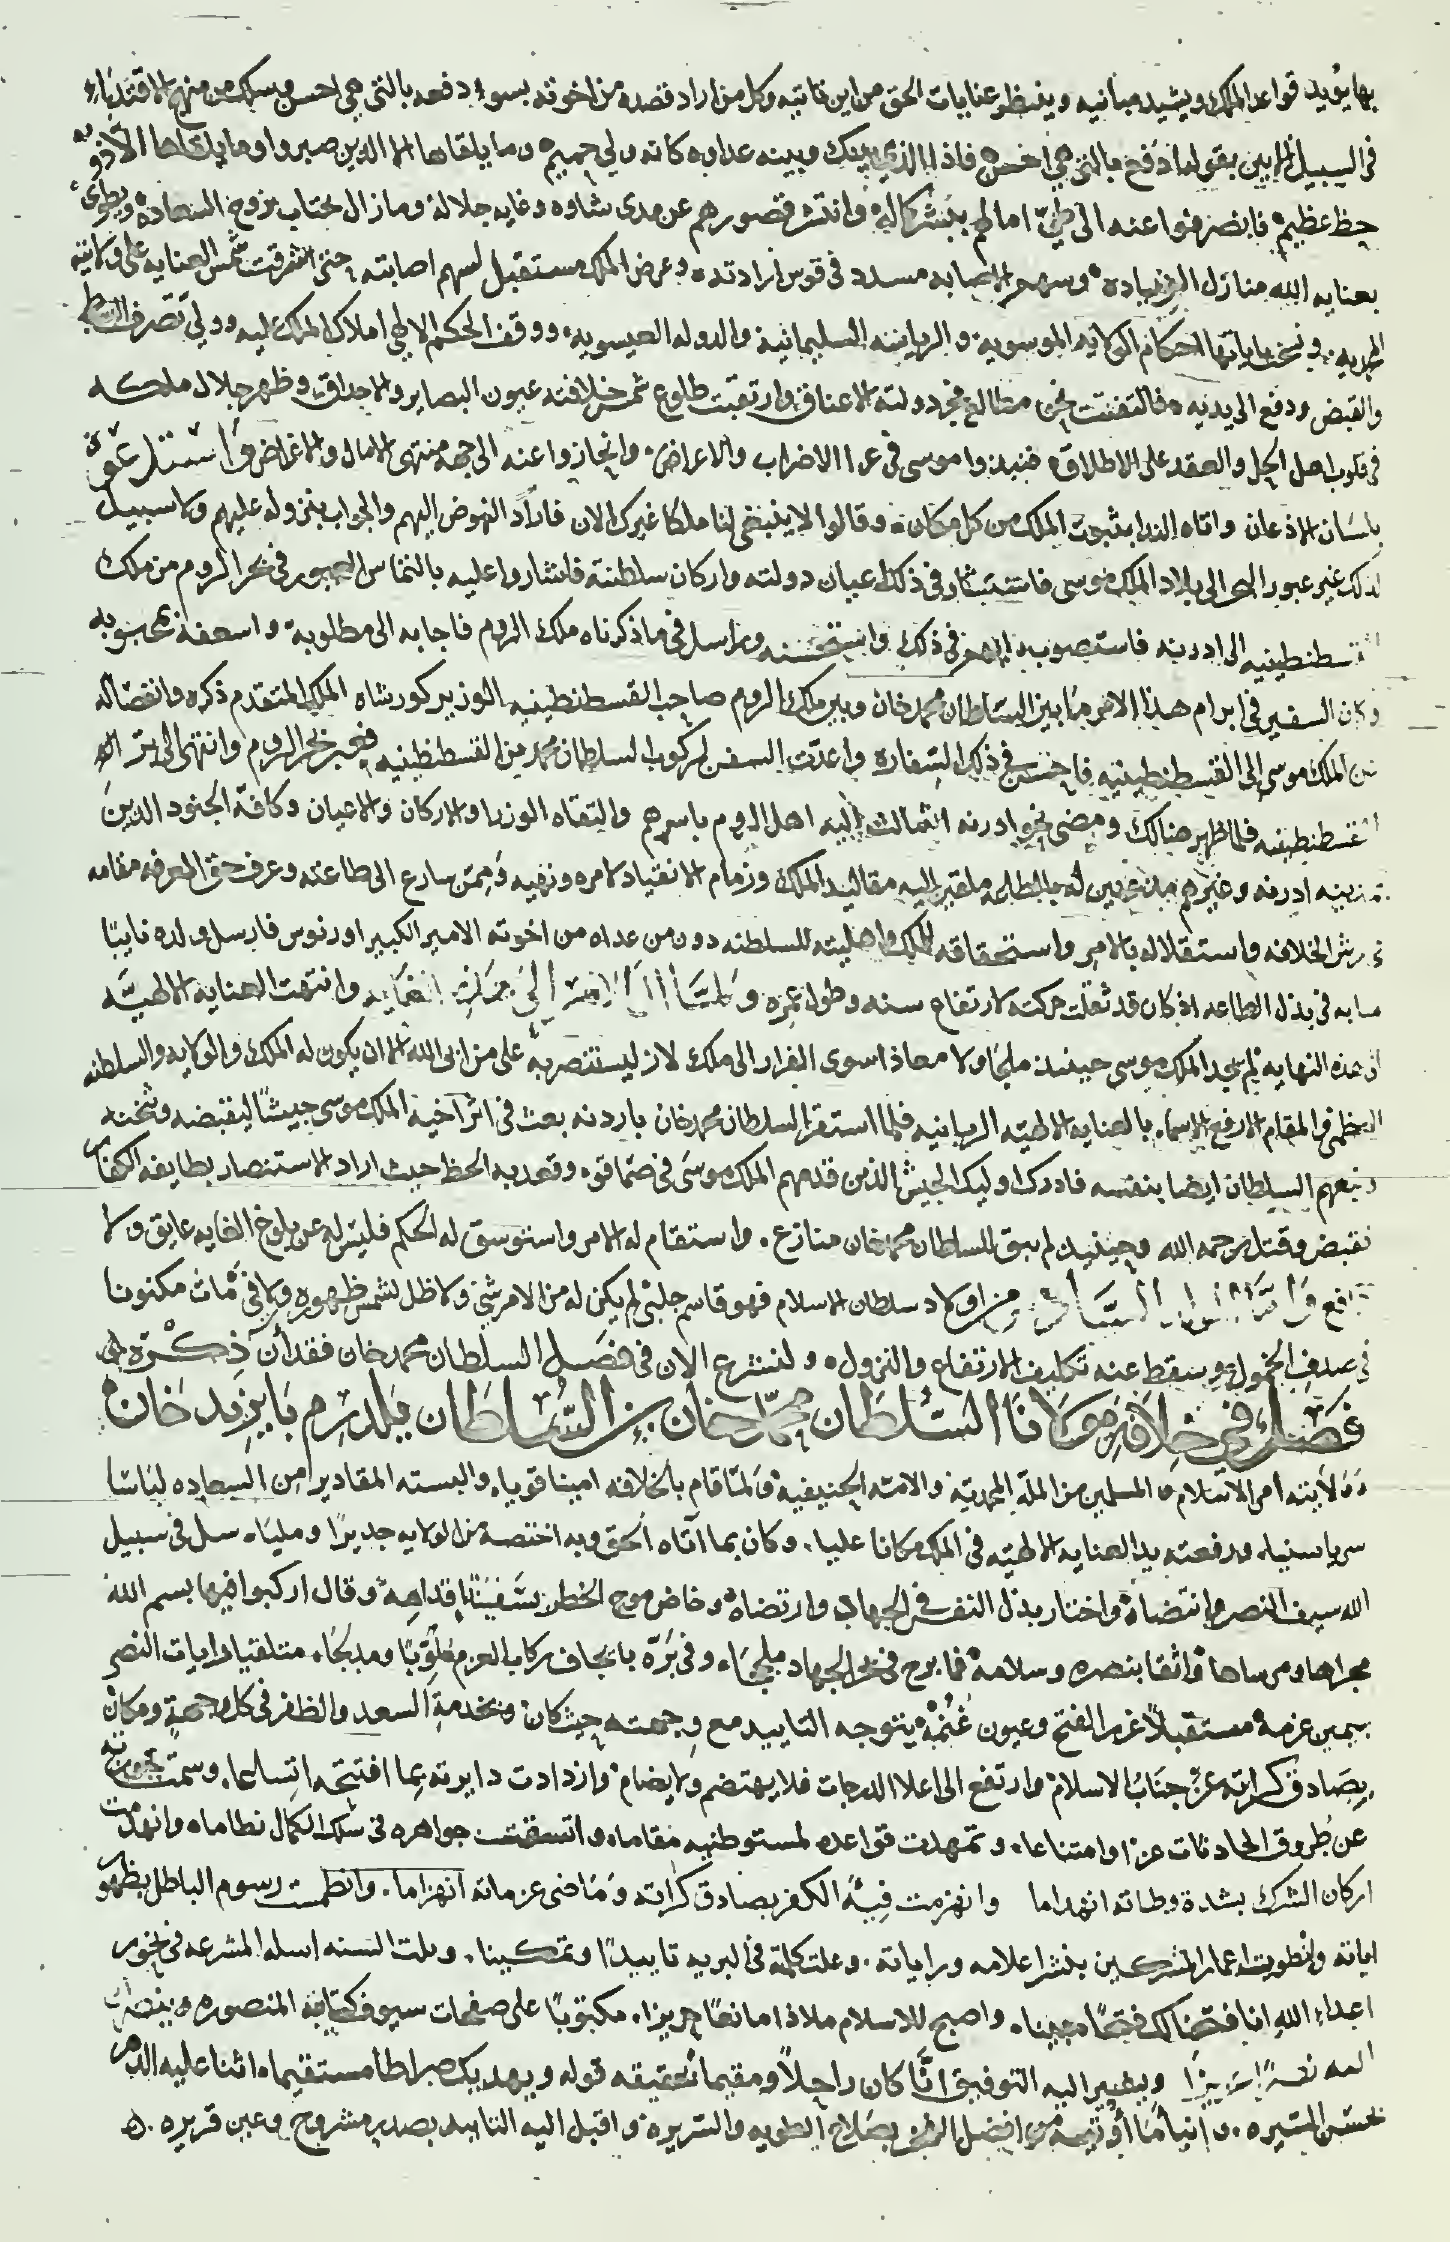 بها يويد قواعد الملك ويشيد مبانيه وينظر عنايات الحق من اين تاتيه وكل من اراد قصده من اخوته بسوء دفعه بالتي هي احسن وسلك من منهج الاقتداء
في السبيل المبين بقوله ادفع بالتي هي احسن فاذا الذي بينك وبينه عداوه كانه ولي حميم وما يلقاها الا الذين صبروا وما يلقاها الا ذو
حظ عظيم فانصرفوا عنه الى طي امالهم وانتشر قصورهم عن مدى شاوه وغايه جلاله وما زال يجتاب بروج السعاده ويطوي
بعنايه الله منازل الزياده وسهم الاصابه مسدد في قوس ارادته وعرض الملك مستقبل لسهم اصابته حتى اشرقت شمس العنايه على ولايته
المحمديه ونسخت باياتها احكام الولايه الموسويه والرياسه السليمانيه والدوله العيسويه ووقف الحكم الالهي املاك الملك عليه وولي تصرف البسط
والقبض ودفع الى يديه فالتفتت نحو مطالع فجر دولته الاعناق وارتقبت طلوع شمس خلافته عيون البصاير والاحداق وظهر جلال ملكه
في قلوب اهل الحل والعقد على الاطلاق فنبذوا موسى في عرا الاضراب والاعراض وانحازوا عنه الى جهة منتهى الامال والاغراض واستدعوه
بلسان الاذعان واتاه الندا بثبوت الملك من كل مكان وقالوا لا ينبغي لنا ملكا غيرك الان فاراد النهوض اليهم والجواب بنزوله عليهم ولا سبيل
لذلك غير عبور البحر الى بلاد الملك موسى فاستشار في ذلك اعيان دولته واركان سلطنته فاشاروا عليه بالتماس العبور في بحر الروم من ملك
القسطنطينيه الى ادرنه فاستصوب رايهم في ذلك واستحسنه وراسل في ما ذكرناه ملك الروم فاجابه الى مطلوبه واسعفه بمحبوبه
وكان السفير في ابرام هذا الامر ما بين السلطان محمد خان وبين ملك الروم صاحب القسطنطينيه الوزير كورشاه الملك المتقدم ذكره وانفصاله
عن الملك موسى الى القسطنطينيه فاحسن في ذلك السفاره واعدت السفن لركوب السلطان محمد من القسطنطينيه فعبر بحر الروم وانتهى الى بر
القسطنطينيه فلما ظهر هنالك ومضى نحو ادرنه انثالت اليه اهل الروم باسرهم والتقاه الوزرا والاركان والاعيان وكافة الجنود الذين
بمدينه ادرنه وغيرهم مذعنين له بالطاعه ملقين اليه مقاليد الملك وزمام الانقياد لامره ونهيه وممن سارع الى طاعته وعرف حق المعرفه مقامه
عرش الخلافه واستقلاله بالامر واستحقاقه للملك واهليته للسلطنه دون من عداه من اخوته الامير الكبير اورنوس فارسل ولده نايبا
منابه في بذل الطاعه اذ كان قد ثقلت حركته لارتفاع سنه وطول عمره ولما الى وانتهت العنايه الالهيه
الى هذه النهايه لم يجد الملك موسى حينئذ ملجا ولا معاذا سوى الفرار الى ملك لاز ليستنصر به على من ابى الله الا ان يكون له الملك والولايه والسلطنه
العظمى في المقام الارفع الاسما بالعنايه الالهيه الربانيه فلما استقر السلطان محمد خان بادرنه بعث في اثر اخيه الملك موسى جيشا ليقبضه
وتبعهم السلطان ايضا بنفسه فادرك اوليك الجيش الذين قدمهم الملك موسى في صماقوه وقعد به الحظ حيث اراد الاستنصار بطايفه الكفار
فقبض وقتل رحمه الله وحينيذ لم يبق للسلطان محمد خان منازع واستقام له الامر واستوسق له الحكم فليس له عن بلوغ الغايه عايق ولا
دافع من اولاد سلطان الاسلام فهو قاسم جلبي لم يكن له من الامر شي ولا ظل لشمس ظهوره ولا في مات مكنونا
في صدف الخمول وسقط عنه تكليف الارتفاع والنزول ولنشرع الان في فصل السلطان محمد خان فقد آن ذكره
فصل في خلافة مولانا السلطان محمد خان بن السلطان يلدرم بايزيد خان
وولايته امر الاسلام والمسلمين من الملة المحمدية والامة الحنيفية ولما قام بالخلافه امينا قويا والبسته المقادير من السعاده لباسا
سريا سنيا ورفعته يد العنايه الالهيه في الملك مكانا عليا وكان بما آتاه الحق وبه اختصه من الولايه جديرا ومليا سل في سبيل
الله سيف النصر وانتضاه واختار بذل النفس في الجهاد وارتضاه وخاض موج الخطر بسفينة اقدامه وقال اركبوا فيها بسم الله
مجراها ومرساها واثقا بنصره وسلامه فما برح في بحر الجهاد ملججا وفي بره بايجاف ركاب العزم مأوبا ومدلجا متلقيا رايات النصر
بيمين عزمه مستقبلا غرر الفتح وعيون غنمه يتوجه التاييد مع وجهته حيث كان ويخدمه السعد والظفر في كل وجهة ومكان
بصادق كراته عز جناب الاسلام وارتفع الى اعلا الدرجات فلا يهتضم ولا يضام وازدادت دايرته بما افتتحه اتساعا وسمت
عن طروق الحادثات عزا وامتناعا وتمهدت قواعده لمستوطنيه مقاما واتسقت جواهره في سلك الكمال نظاما وانهدمت
اركان الشرك بشدة وطاته انهداما وانهزمت فيئة الكفر بصادق كراته وماضي عزماته انهزاما وانطمست رسوم الباطل بظهور
اياته وانطويت اعمار المشركين بنشر اعلامه وراياته وعلت كلمته في البريه تاييدا وتمكينا وتلت السنه اسله المشرعه في نحور
اعداء الله انا فتحنا لك فتحا مبينا واصبح للاسلام ملاذا مانعا حريزا مكتوبا على صفحات سيوف كتايبه المنصوره وينصرك
الله نصرا عزيزا ويشير اليه التوفيق انا كان راحلا ومقيما بحقيقه قوله ويهديك صراطا مستقيما اثنا عليه الدهر
بحسن السيره وانبا ما اوتيه من افضل بصلاح الطويه والسريره واقبل اليه التاييد بصدر مشروح وعين قريره